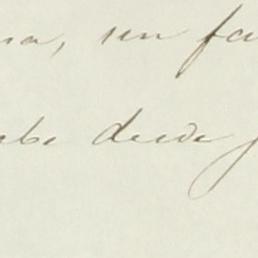 na, un fa
abe desde